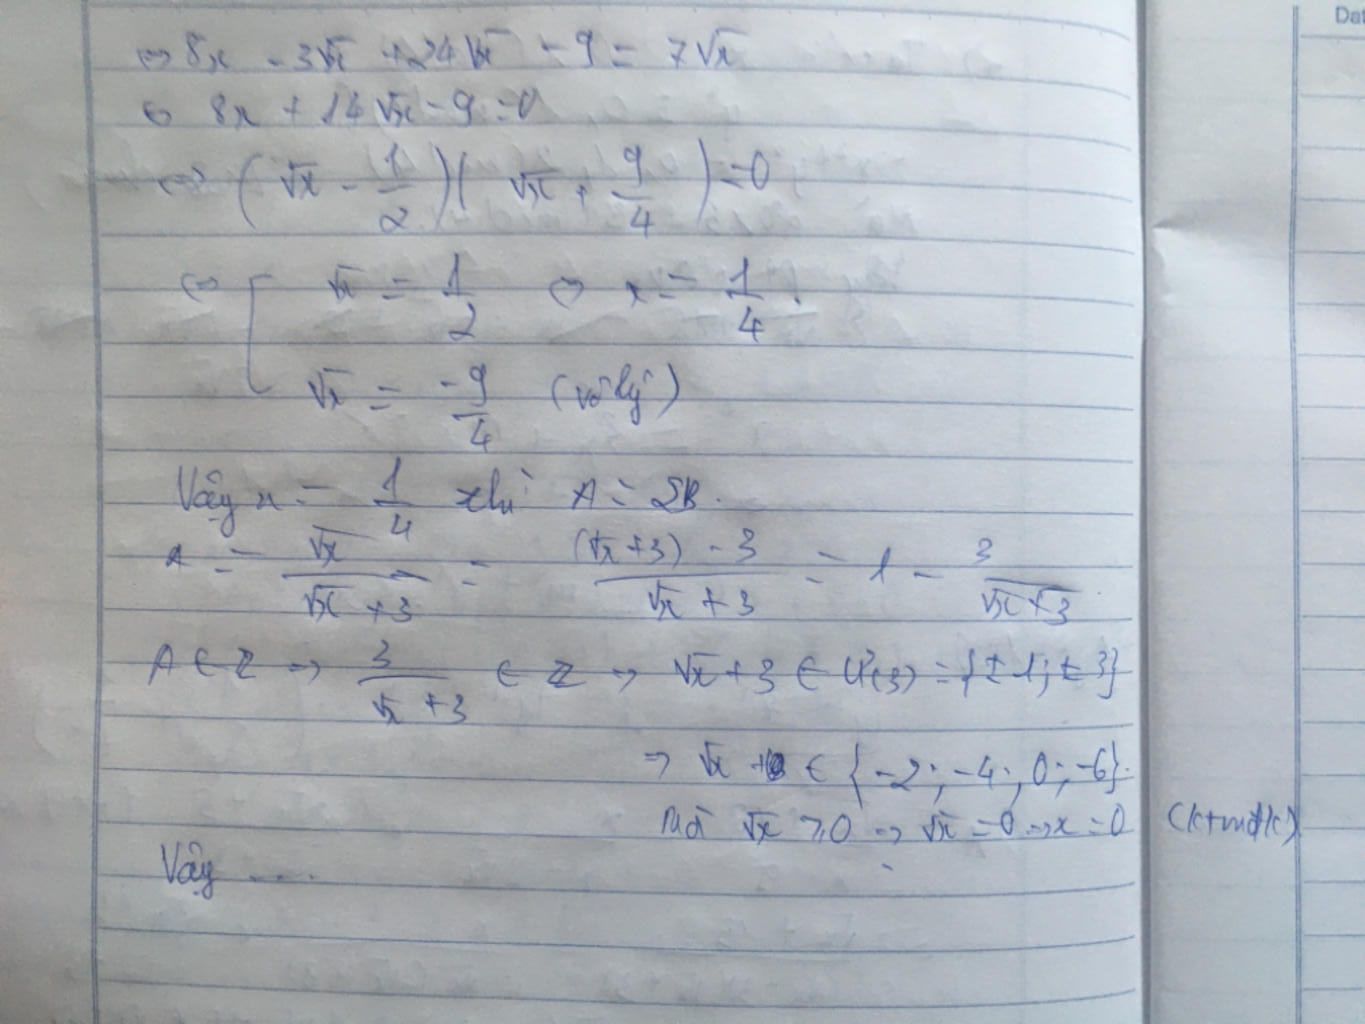 ⇔ 8x - 3√x + 24√x - 9 = 7√x
⇔ 8x + 14√x - 9 = 0
⇔ (√x - 1/2)(√x + 9/4) = 0
⇔ [ √x = 1/2 ⇔ x = 1/4.
√x = -9/4 (vô lý)
Vậy x = 1/4 thì A = 2B.
A = √x/(√x + 3) = ((√x + 3) - 3)/(√x + 3) = 1 - 3/(√x + 3)
A ∈ Z ⇒ 3/(√x + 3) ∈ Z ⇒ √x + 3 ∈ Ư(3) = {± 1; ± 3}
⇒ √x ∈ {-2; -4; 0; -6}.
Mà √x ≥ 0 ⇒ √x = 0 ⇒ x = 0 (ktmđk)
Vậy ....
Dat